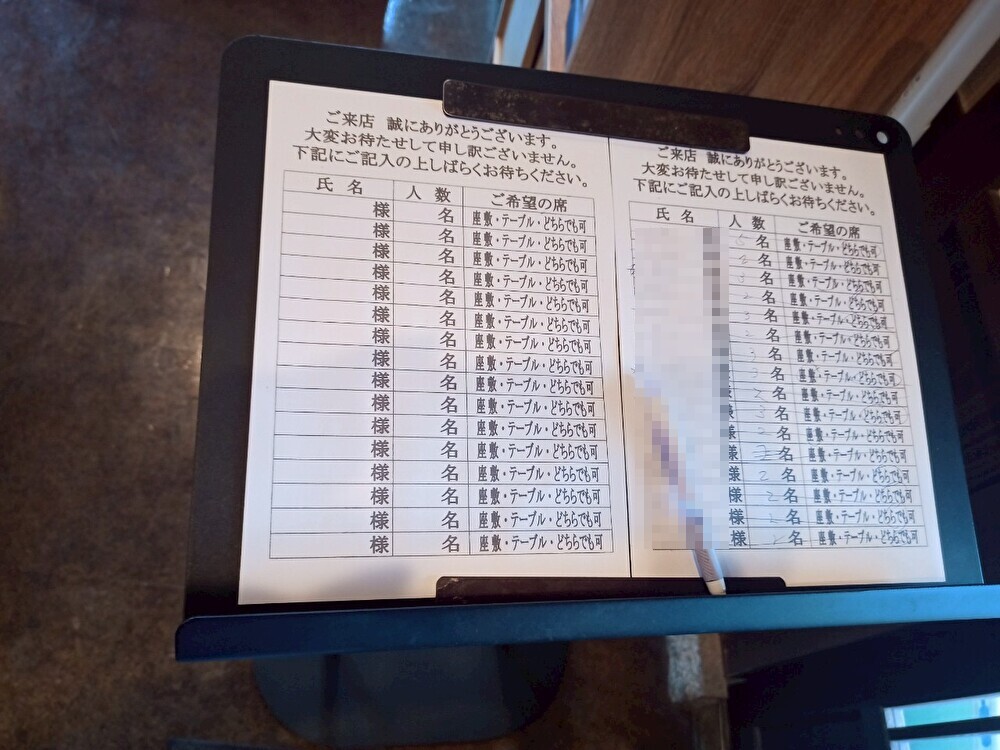 ご来店 誠にありがとうございます。
大変お待たせして申し訳ございません。
下記にご記入の上しばらくお待ちください。
氏名 人数 ご希望の席
様 名 座敷・テーブル・どちらでも可
様 名 座敷・テーブル・どちらでも可
様 名 座敷・テーブル・どちらでも可
様 名 座敷・テーブル・どちらでも可
様 名 座敷・テーブル・どちらでも可
様 名 座敷・テーブル・どちらでも可
様 名 座敷・テーブル・どちらでも可
様 名 座敷・テーブル・どちらでも可
様 名 座敷・テーブル・どちらでも可
様 名 座敷・テーブル・どちらでも可
様 名 座敷・テーブル・どちらでも可
様 名 座敷・テーブル・どちらでも可
様 名 座敷・テーブル・どちらでも可
様 名 座敷・テーブル・どちらでも可
様 名 座敷・テーブル・どちらでも可
様 名 座敷・テーブル・どちらでも可
ご来店 誠にありがとうございます。
大変お待たせして申し訳ございません。
下記にご記入の上しばらくお待ちください。
氏名 人数 ご希望の席
名 座敷・テーブル・どちらでも可
名 座敷・テーブル・どちらでも可
名 座敷・テーブル・どちらでも可
2 名 座敷・テーブル・どちらでも可
3 名 座敷・テーブル・どちらでも可
名 座敷・テーブル・どちらでも可
3 名 座敷・テーブル・どちらでも可
名 座敷・テーブル・どちらでも可
2 名 座敷・テーブル・どちらでも可
3 名 座敷・テーブル・どちらでも可
2 名 座敷・テーブル・どちらでも可
様 名 座敷・テーブル・どちらでも可
様 2 名 座敷・テーブル・どちらでも可
様 2 名 座敷・テーブル・どちらでも可
様 名 座敷・テーブル・どちらでも可
様 名 座敷・テーブル・どちらでも可